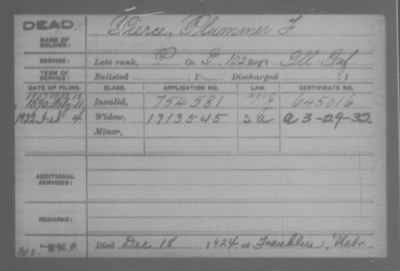 DEAD
NAME OF SOLDIER: Pierce, Plummer F
SERVICE: Late rank, P Co. D, 102 Reg't Ill. Inf
TERM OF SERVICE: Enlisted , 1 Discharged , 1
DATE OF FILING. CLASS. APPLICATION NO. LAW. CERTIFICATE NO.
1890 July 11 Invalid, 754581 645016
1922 4 Widow, 1913545 a 3-29-32
Minor,
ADDITIONAL SERVICES:
REMARKS:
Died Dec 18, 1924, at Franklin, Nebr